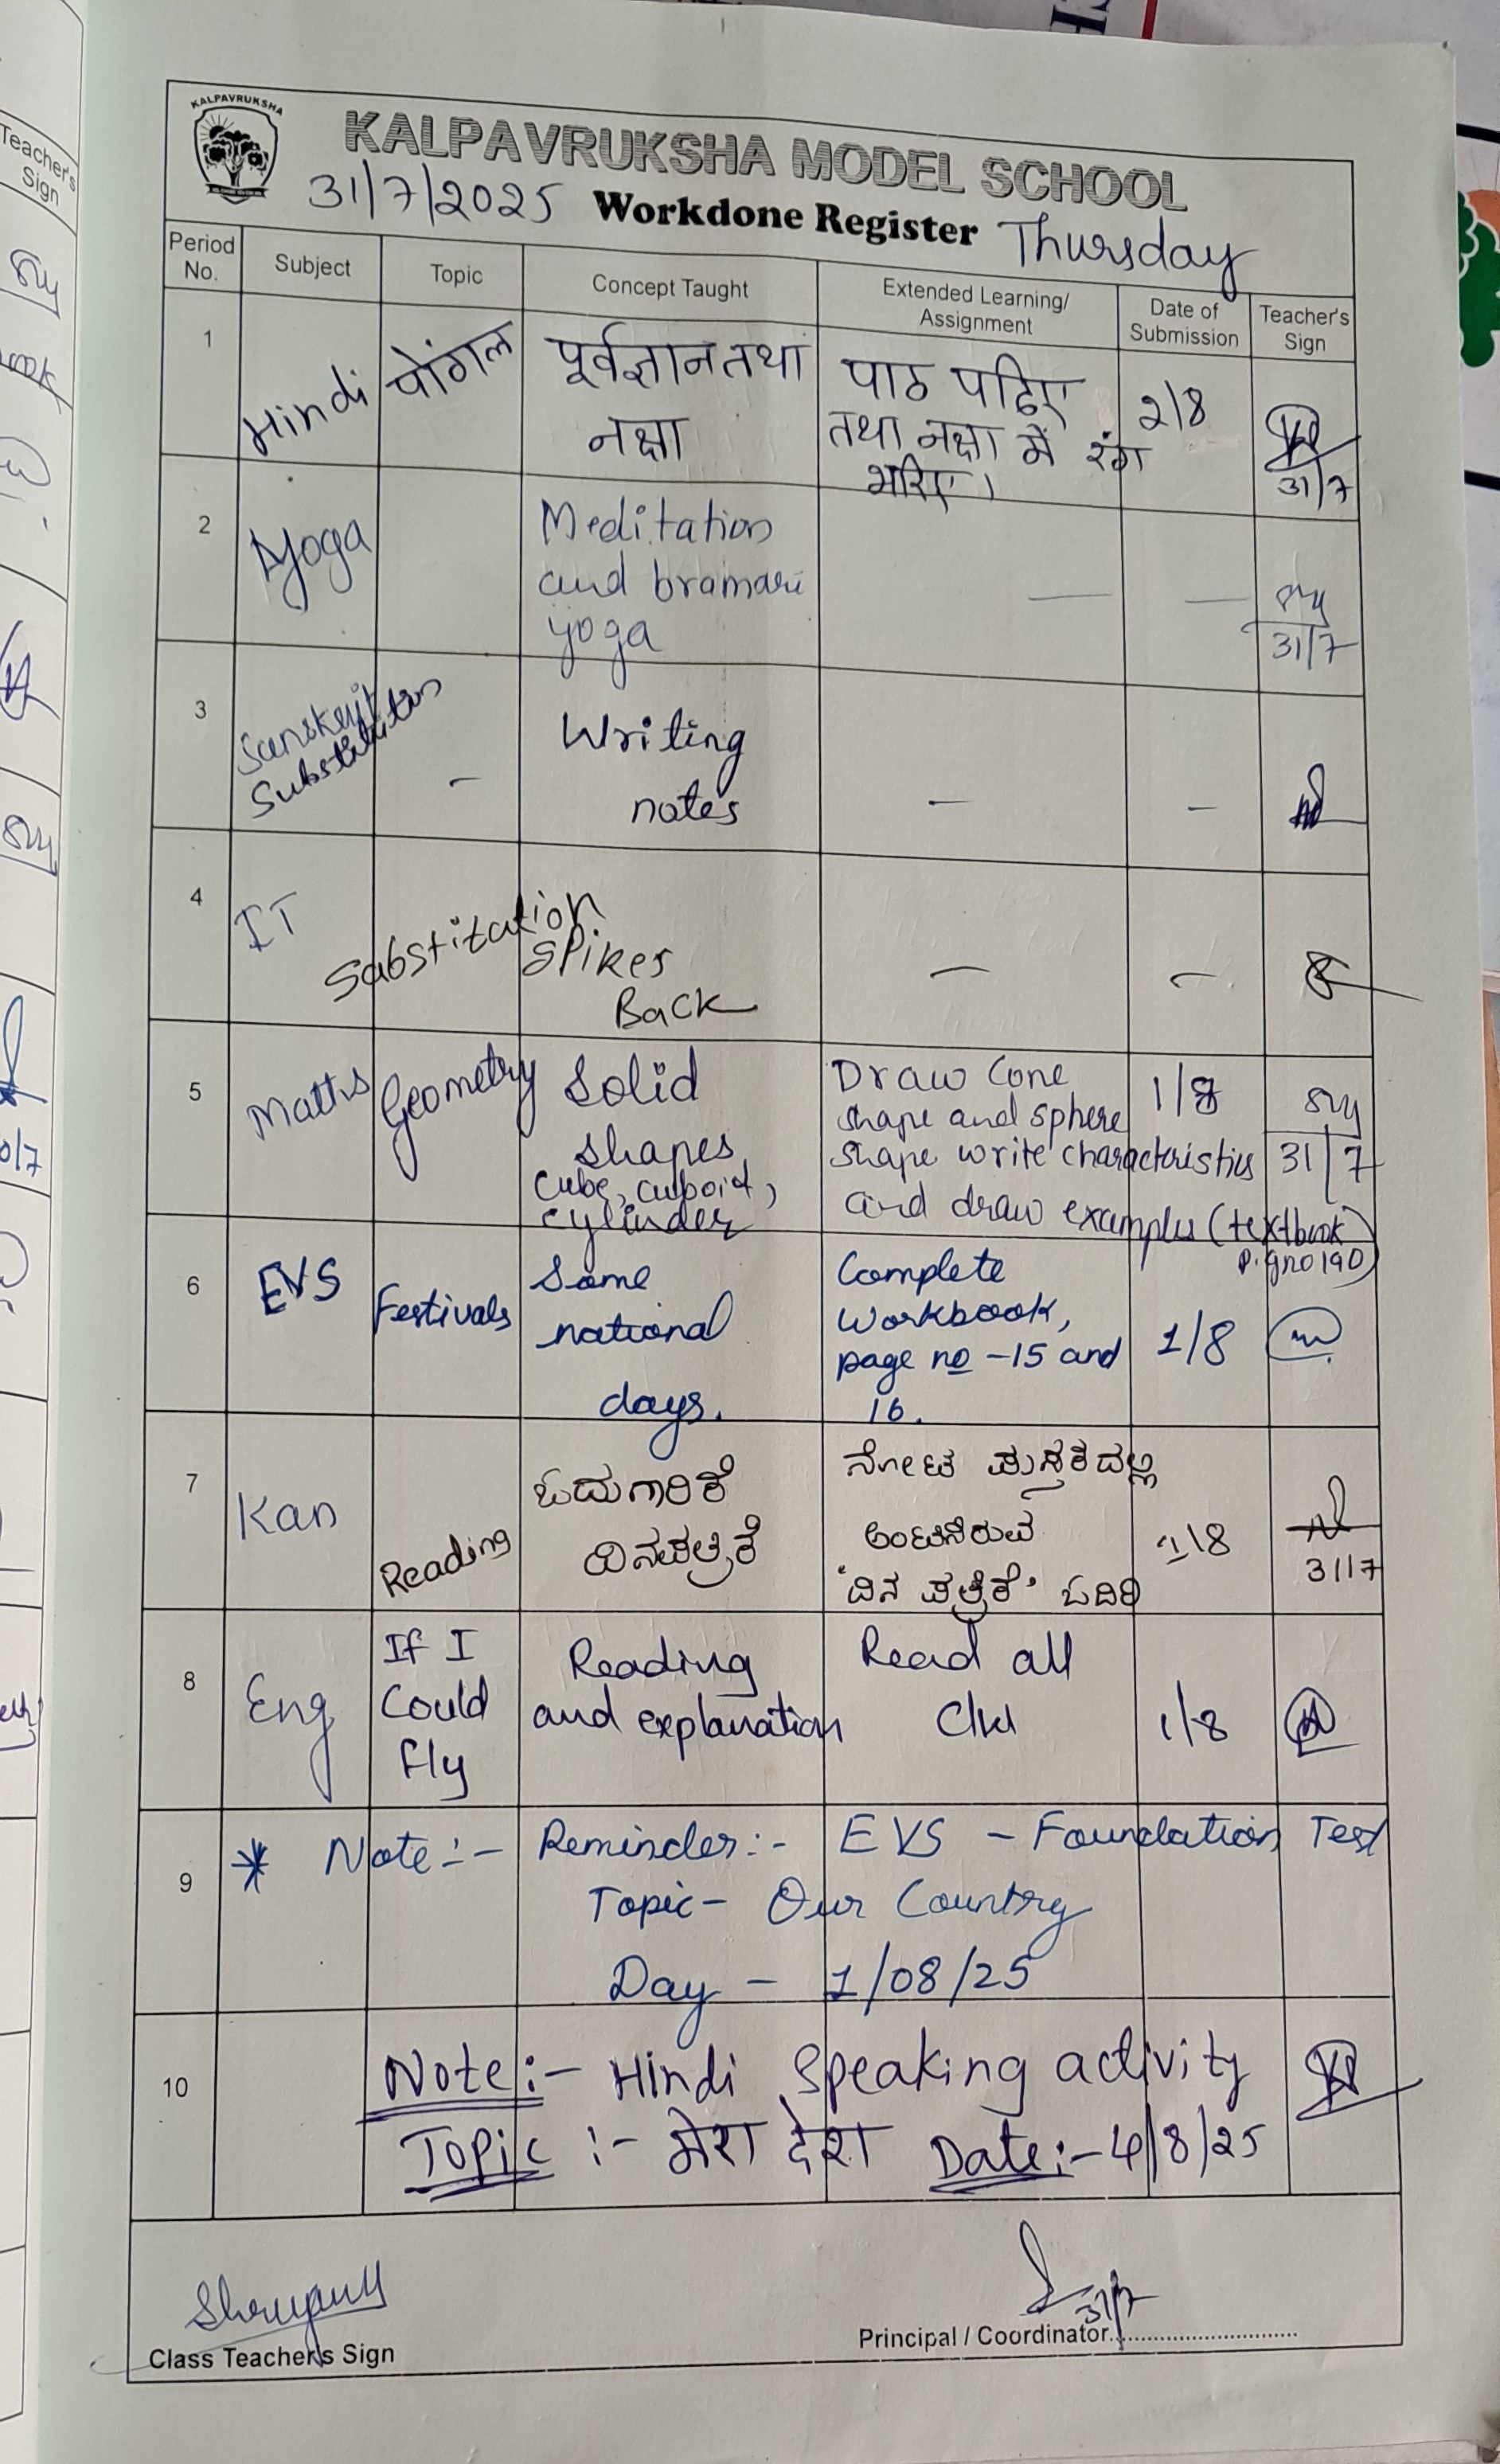 KALPAVRUKSHA
KALPAVRUKSHA MODEL SCHOOL
31/7/2025 Workdone Register Thursday
Period No. Subject Topic Concept Taught Extended Learning/ Assignment Date of Submission Teacher's Sign
1 Hindi पोंगल पूर्वज्ञान तथा नक्षा पाठ पढ़िए तथा नक्षा में रंग भरिए। 2/8 31/7
2 Yoga Meditation and bramari yoga — — 31/7
3 Sanskrit Substitution - Writing notes - -
4 IT Substitution SPikes Back - -
5 Maths Geometry Solid shapes Cube, cuboid, cylinder Draw Cone shape and sphere shape write characteristics and draw examples (textbook p.gno 190) 1/8 31/7
6 EVS Festivals Some national days. Complete Workbook, page no -15 and 16. 1/8
7 Kan Reading ಓದುಗಾರಿಕೆ ದಿನಪತ್ರಿಕೆ ನೋಟ ಪುಸ್ತಕದಲ್ಲಿ ಅಂಟಿಸಿರುವ 'ದಿನ ಪತ್ರಿಕೆ' ಓದಿರಿ 1/8 31/7
8 Eng If I Could fly Reading and explanation Read all C/W 1/8
9 * Note:- Reminder:- EVS - Foundation Test
Topic- Our Country
Day - 1/08/25
10 Note:- Hindi Speaking activity
Topic :- मेरा देश Date:- 4/8/25
31/7
Class Teacher's Sign Principal / Coordinator
Teacher's
Sign